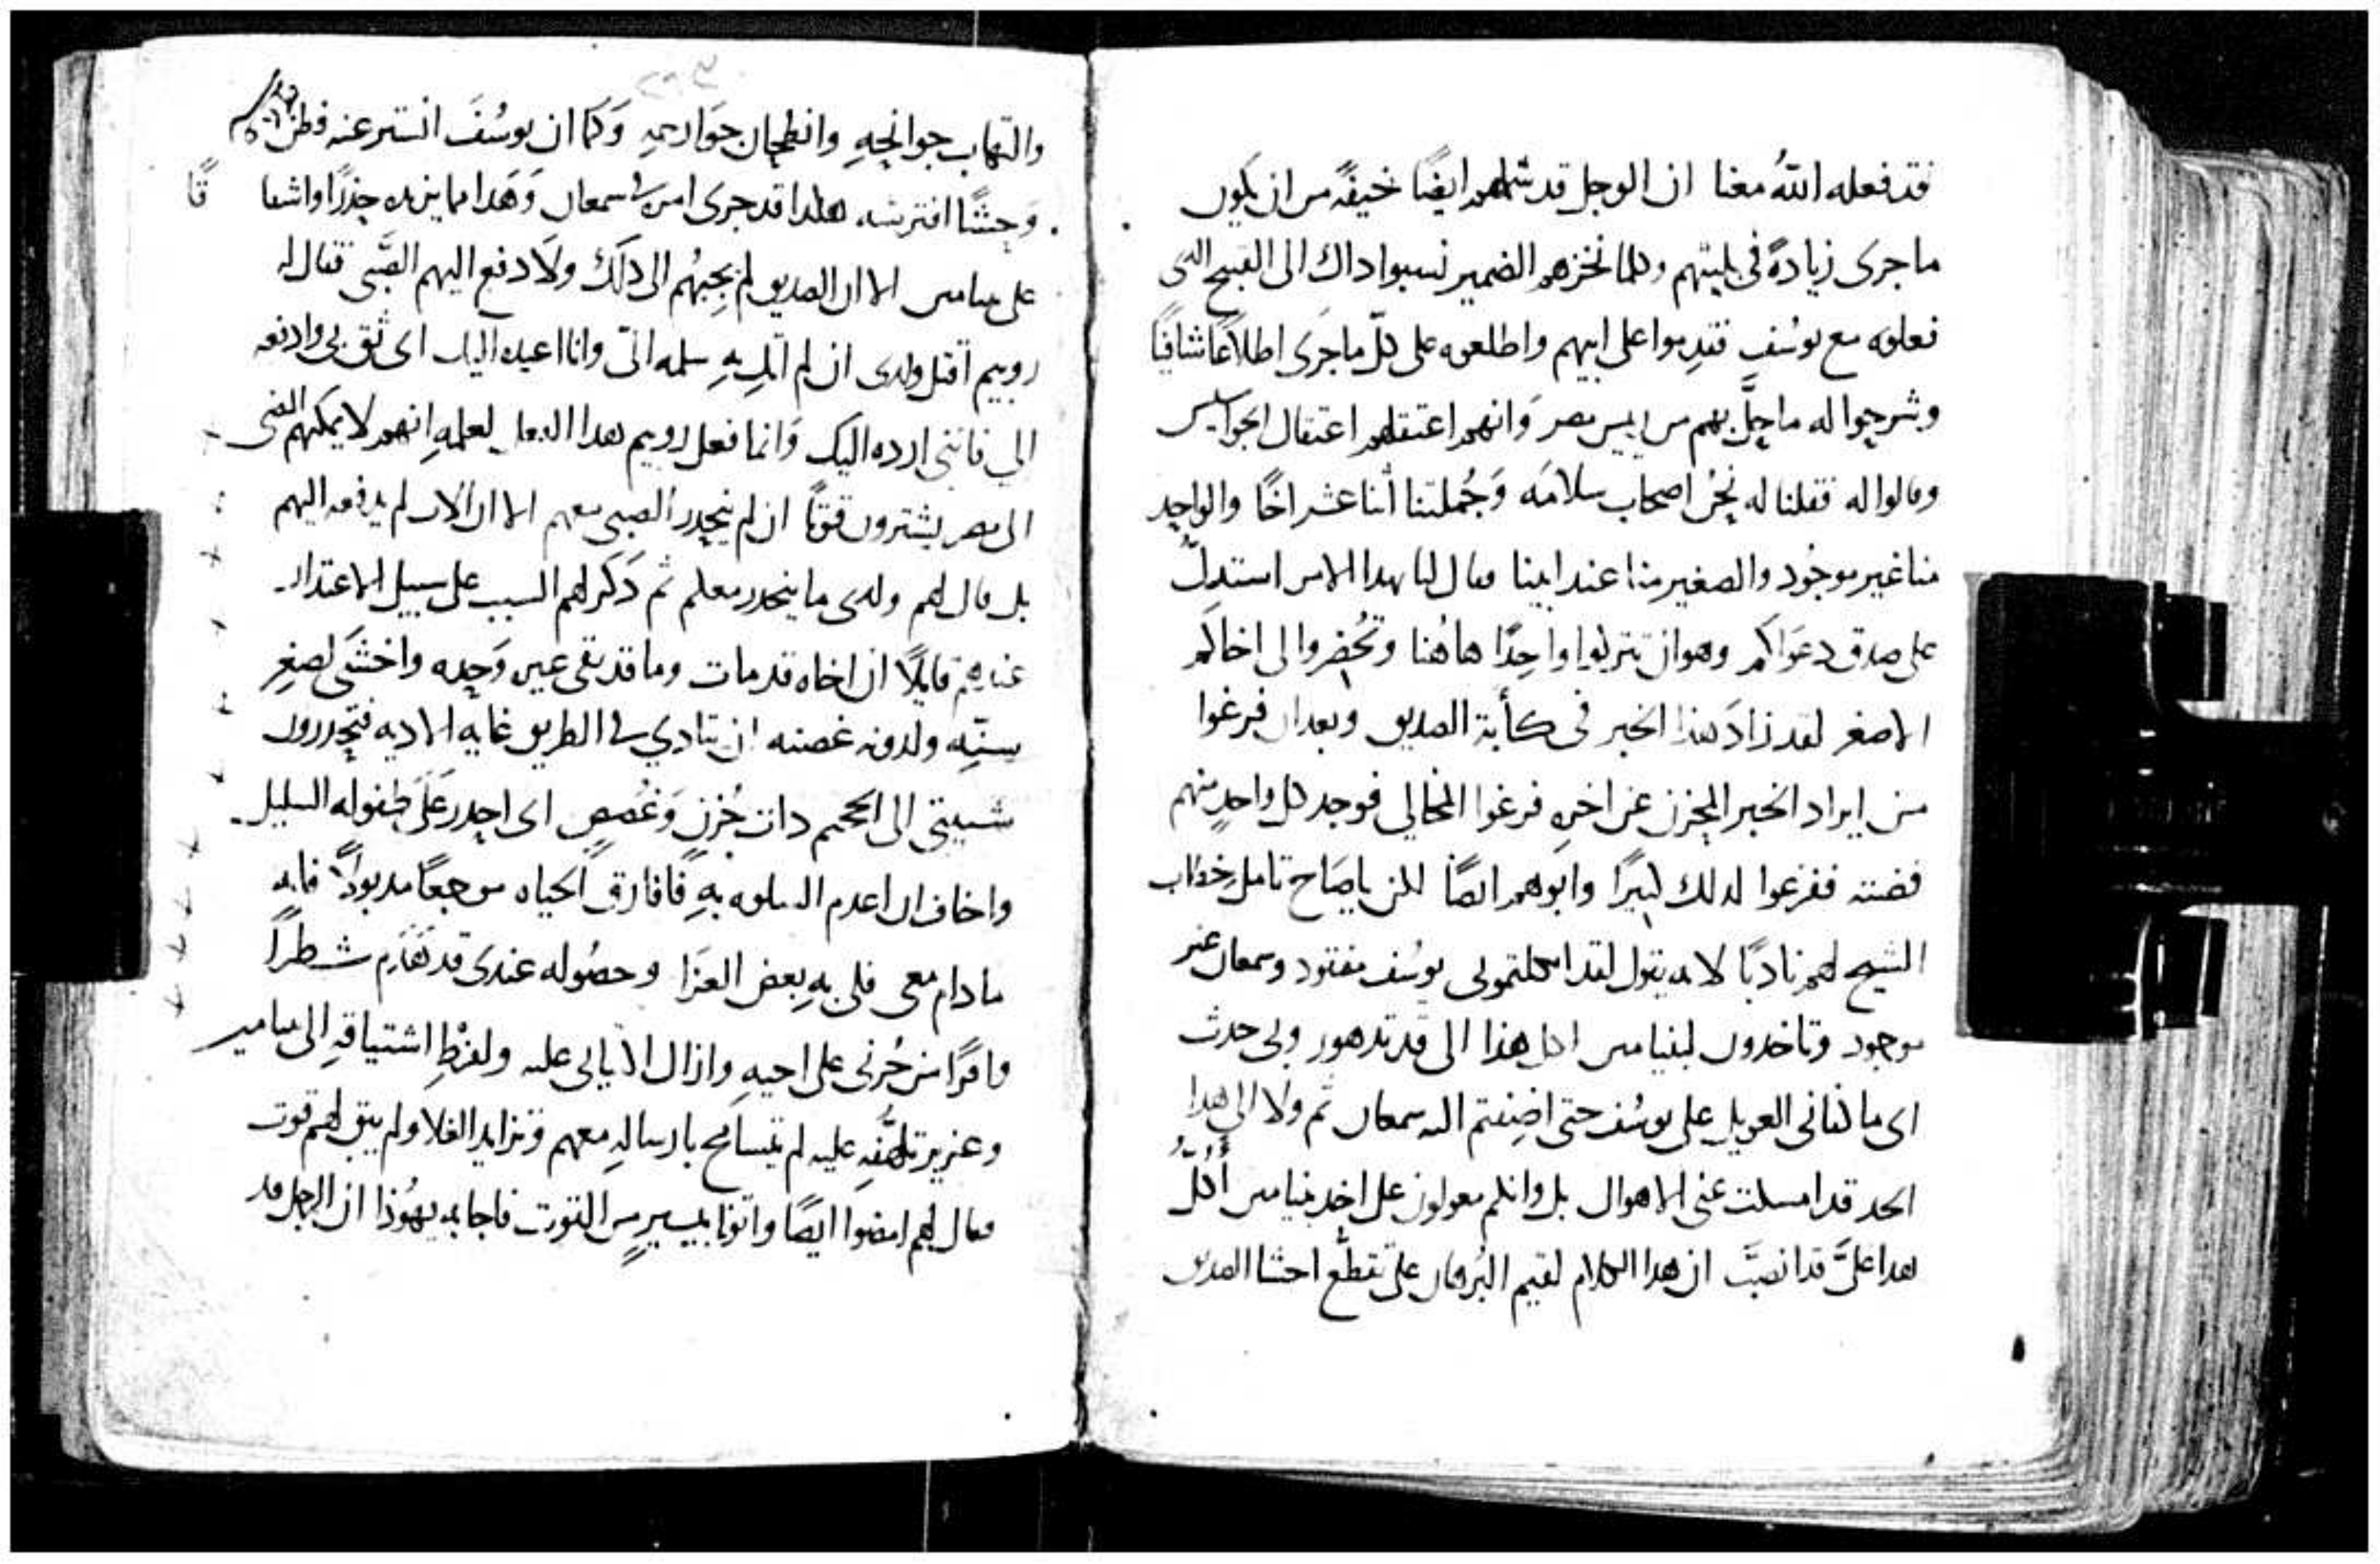 قد فعله الله معنا ان الوجل قد شملهم ايضًا خيفةً من ان يكون
ما جرى زيادةً فى بليتهم وكلما نخزهم الضمير نسبوا داك الى القبيح الدى
فعلوه مع يوسُف فقدِموا على ابيهم واطلعوه على كلّ ما جرَى اطلاعًا شافيًا
وشرحوا له ما حلَّ بهم من رييس مصر وَانهم اعتقلهم اعتقال الجواسيس
وقالوا له فقلنا له نحنُ اصحاب سلامَه وَجُملتنا اثنا عشر اخًا والواحِد
منا غير موجُود والصغير منا عند ابينا فقال لنا بهدا الامر استدلّ
على صدق دعوَاكم وهو ان تتركوا واحِدًا هاهُنا وتحُضروا لى اخاكم
الاصغر لقد زادَ هذا الخبر فى كأبة الصديق وبعد ان فرغوا
من ايراد الخبر المحزن عن اخرهِ فرغوا المخالي فوجد كل واحدٍ منهم
فضته ففزعوا لدلك كبيرًا وابوهم ايضًا لكن ياصَاح تامل خطاب
الشيخ لهم نادبًا لانه يقول لقد اثكلتمونى يوسُف مفقود وسمعان غير
موجود وتاخدون لبنيامين اكل هذا الى قد تدهور وبى حدث
اى ما كفانى العويل على يوسُف حتى اضِفتم اليه سمعان ثم ولا الى هدا
الحد قد امسكت عنى الاهوال بل وانكم معولون على اخد بنيامين أكُلُّ
هدا علىَّ قد انصبَّ ان هدا الكلام لقيم البُرهان على تقطُّع احشا الصديق
والتهاب جوانحِهِ وانطحان جوَارحِهِ وَكما ان يوسُفَ انستر عنه فظن ان
وَحِشًا افترسَه هكدا قد جرى امر سمعان وَهدا مما يزيده حِذرًا واشفاقًا
على بنيامين الا ان الصديق لم يجِبهُم الى دلكَ ولَا دفع اليهم الصَّبى فقال له
روبيم اقتل ولدى ان لم اتِك بهِ سلمه الىّ وانا اعيده اليك اى ثق بى وادفعه
الي فانني ارده اليك وَانما فعل روبيم هدا الفعل لعلمهِ انهم لا يمكنهم المضى
الى مصر يشترون قوتًا ان لم ينحدر الصبى معهم الا ان الاب لم يدفعه اليهم
بل قال لهم ولدى ما ينحدر معكم ثم دَكَر لهم السبب على سبيل الاعتدار
عندهم قايلًا ان اخاه قد مات وما قد بقى غيره وَحِده واخشَى لصغرِ
سنِّه ولدونه غصنه ان يتادي فى الطريق غايه الاديه فتحِدرون
شيبتى الى الجحيم دات حُزنٍ وَغُصصٍ اى احدر عَلَى طفوله السليل
واخاف ان اعدم السلوه بهِ فافارق الحياه موجعًا مدبودًا فانه
ما دام معى فلى بهِ بعض العزَا وحصُوله عندى قد هَدَم شطرًا
وافرًا من حُزنى على اخيهِ وازال الايابى عليه ولفرْطِ اشتياقهِ الى بنيامين
وعزيز تلهُّفهِ عليه لم يتسامح بارسالهِ معهم وتزايد الغلا ولم يبق لهم قوت
فقال لهم امضوا ايضًا واتونا بيسيرٍ من القوت فاجابه يهُوذا ان الرجل قد